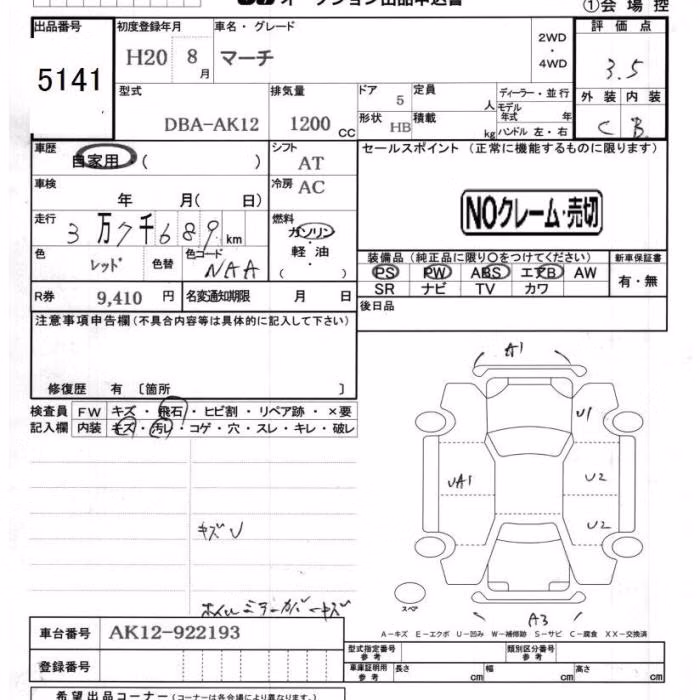 オークション出品申込書
①会場控
出品番号 初度登録年月 車名・グレード 2WD・4WD 評価点
5141 H20 8月 マーチ 3.5
型式 排気量 ドア 定員 ディーラー・並行 外装 内装
DBA-AK12 1200CC 5 人 モデル年式 年 C B
形状 HB 積載 kg ハンドル 左・右
車歴 自家用 ( ) シフト AT セールスポイント (正常に機能するものに限ります)
車検 年 月( 日) 冷房 AC NOクレーム・売切
走行 3万7千689km 燃料 ガソリン・軽油・( )
色 レッド 色替 色コード NAA
装備品 (純正品に限り○をつけてください) 新車保証書
PS PW ABS エアB AW 有・無
SR ナビ TV カワ
R券 9,410円 名変通知期限 月 日 後日品
注意事項申告欄 (不具合内容等は具体的に記入して下さい)
修復歴 有 〔箇所 〕
検査員記入欄 FW キズ・飛石・ヒビ割・リペア跡・×要
内装 キズ・汚レ・コゲ・穴・スレ・キレ・破レ
A1
U1
UA1
U2
U2
キズU
ホイルミラーカバーキズ
スペア
A3
A-キズ E-エクボ U-凹み W-補修跡 S-サビ C-腐食 XX-交換済
車台番号 AK12-922193
型式指定番号 参考 類別区分番号 参考
登録番号
車庫証明用 参考 長さ cm 幅 cm 高さ cm
希望出品コーナー (コーナーは各会場により異なります)